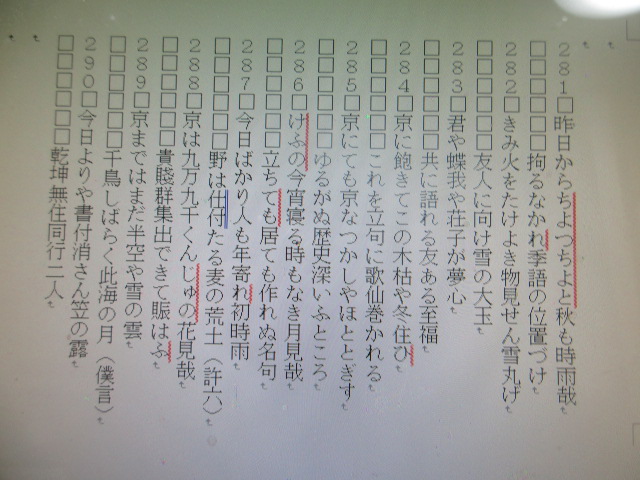 ２８１□昨日からちよつちよと秋も時雨哉
□□□□□拘るなかれ季語の位置づけ
２８２□きみ火をたけよき物見せん雪丸げ
□□□□□友人に向け雪の大玉
２８３□君や蝶我や荘子が夢心
□□□□□共に語れる友ある至福
２８４□京に飽きてこの木枯や冬住ひ
□□□□□これを立句に歌仙巻かれる
２８５□京にても京なつかしやほととぎす
□□□□□ゆるがぬ歴史深いふところ
２８６□けふの今宵寝る時もなき月見哉
□□□□□立ちても居ても作れぬ名句
２８７□今日ばかり人も年寄れ初時雨
□□□□□野は仕付たる麦の荒土（許六）
２８８□京は九万九千くんじゅの花見哉
□□□□□貴賤群集出できて賑はふ
２８９□京まではまだ半空や雪の雲
□□□□□千鳥しばらく此海の月（僕言）
２９０□今日よりや書付消さん笠の露
□□□□□乾坤無住同行二人